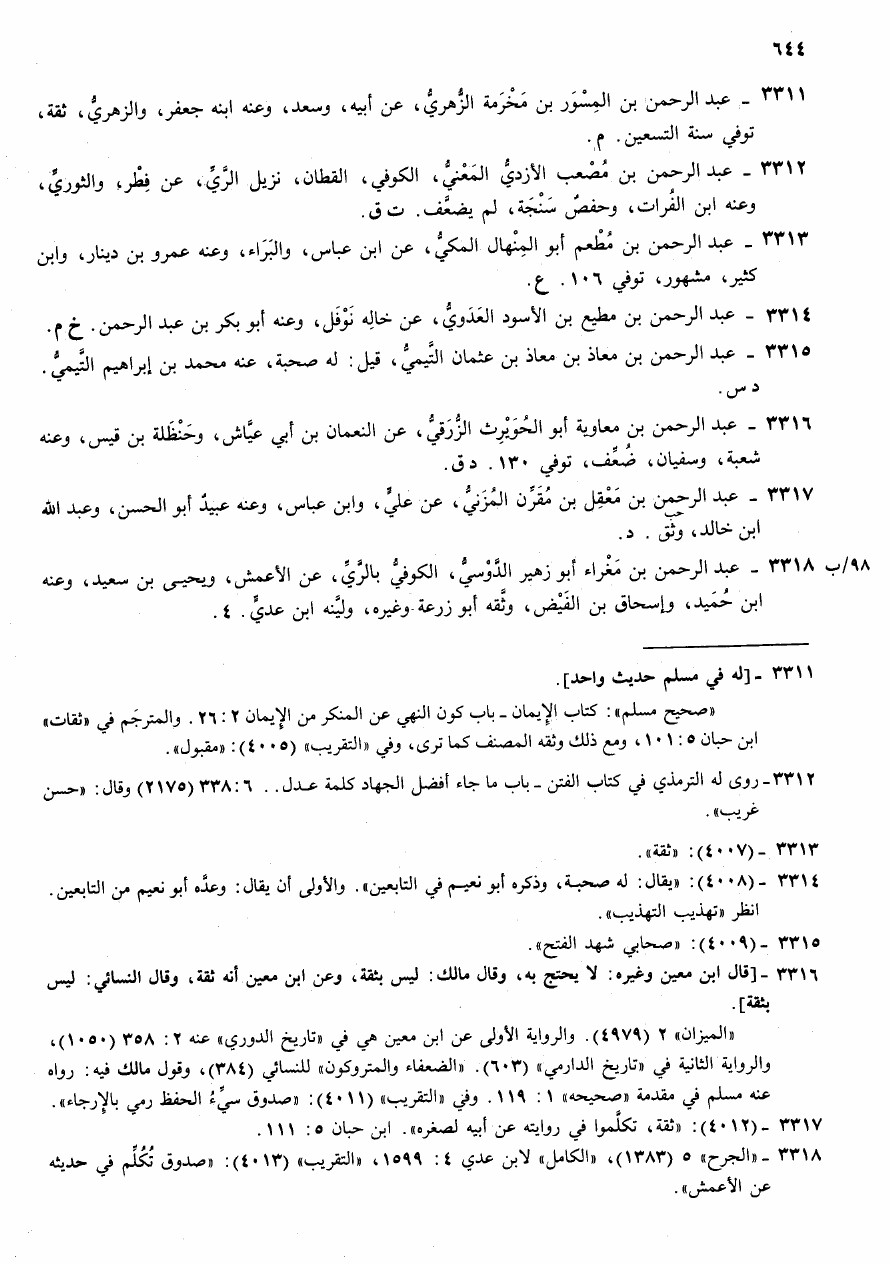 ٦٤٤
٣٣١١ ـ عبد الرحمن بن المِسْوَر بن مَخْرَمة الزُّهريُّ، عن أبيه، وسعد، وعنه ابنه جعفر، والزهريُّ، ثقة،
توفي سنة التسعين. م.
٣٣١٢ ـ عبد الرحمن بن مُصْعب الأزديُّ المَعْنيُّ، الكوفي، القطان، نزيل الرَّيِّ، عن فِطْر، والثوريِّ،
وعنه ابن الفُرات، وحفصٌ سَنْجَة، لم يضعَّف. ت ق.
٣٣١٣ ـ عبد الرحمن بن مُطْعم أبو المِنْهال المكيُّ، عن ابن عباس، والبَرَاء، وعنه عمرو بن دينار، وابن
كثير، مشهور، توفي ١٠٦. ع.
٣٣١٤ ـ عبد الرحمن بن مطيع بن الأسود العَدَويُّ، عن خالِه نَوْفَل، وعنه أبو بكر بن عبد الرحمن. خ م.
٣٣١٥ ـ عبد الرحمن بن معاذ بن معاذ بن عثمان التَّيميُّ، قيل: له صحبة، عنه محمد بن إبراهيم التَّيميُّ.
د س.
٣٣١٦ ـ عبد الرحمن بن معاوية أبو الحُوَيْرِث الزُّرَقيُّ، عن النعمان بن أبي عيَّاش، وحَنْظَلة بن قيس، وعنه
شعبة، وسفيان، ضُعِّف، توفي ١٣٠. د ق.
٣٣١٧ ـ عبد الرحمن بن مَعْقِل بن مُقَرِّن المُزَنيُّ، عن عليٍّ، وابن عباس، وعنه عبيدٌ أبو الحسن، وعبد الله
ابن خالد، وثِّق. د.
٩٨/ب ٣٣١٨ ـ عبد الرحمن بن مَغْراء أبو زهير الدَّوْسيُّ، الكوفيُّ بالرَّيِّ، عن الأعمش، ويحيى بن سعيد، وعنه
ابن حُمَيد، وإسحاق بن الفَيْض، وثَّقه أبو زرعة وغيره، وليَّنه ابن عديٍّ. ٤.
٣٣١١ ـ [له في مسلم حديث واحد].
«صحيح مسلم»: كتاب الإيمان ـ باب كون النهي عن المنكر من الإيمان ٢: ٢٦. والمترجَم في «ثقات»
ابن حبان ٥: ١٠١، ومع ذلك وثقه المصنف كما ترى، وفي «التقريب» (٤٠٠٥): «مقبول».
٣٣١٢ ـ روى له الترمذي في كتاب الفتن ـ باب ما جاء أفضل الجهاد كلمة عدل.. ٦: ٣٣٨ (٢١٧٥) وقال: «حسن
غريب».
٣٣١٣ ـ (٤٠٠٧): «ثقة».
٣٣١٤ ـ (٤٠٠٨): «يقال: له صحبة، وذكره أبو نعيم في التابعين». والأولى أن يقال: وعدَّه أبو نعيم من التابعين.
انظر «تهذيب التهذيب».
٣٣١٥ ـ (٤٠٠٩): «صحابي شهد الفتح».
٣٣١٦ ـ [قال ابن معين وغيره: لا يحتج به، وقال مالك: ليس بثقة، وعن ابن معين أنه ثقة، وقال النسائي: ليس
بثقة].
«الميزان» ٢ (٤٩٧٩). والرواية الأولى عن ابن معين هي في «تاريخ الدوري» عنه ٢: ٣٥٨ (١٠٥٠)،
والرواية الثانية في «تاريخ الدارمي» (٦٠٣). «الضعفاء والمتروكون» للنسائي (٣٨٤)، وقول مالك فيه: رواه
عنه مسلم في مقدمة «صحيحه» ١: ١١٩. وفي «التقريب» (٤٠١١): «صدوق سيِّءُ الحفظ رمي بالإرجاء».
٣٣١٧ ـ (٤٠١٢): «ثقة، تكلَّموا في روايته عن أبيه لصغره». ابن حبان ٥: ١١١.
٣٣١٨ ـ «الجرح» ٥ (١٣٨٣)، «الكامل» لابن عدي ٤: ١٥٩٩، «التقريب» (٤٠١٣): «صدوق تُكُلِّم في حديثه
عن الأعمش».